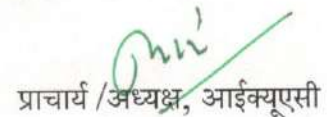 प्राचार्य /अध्यक्ष, आईक्यूएसी